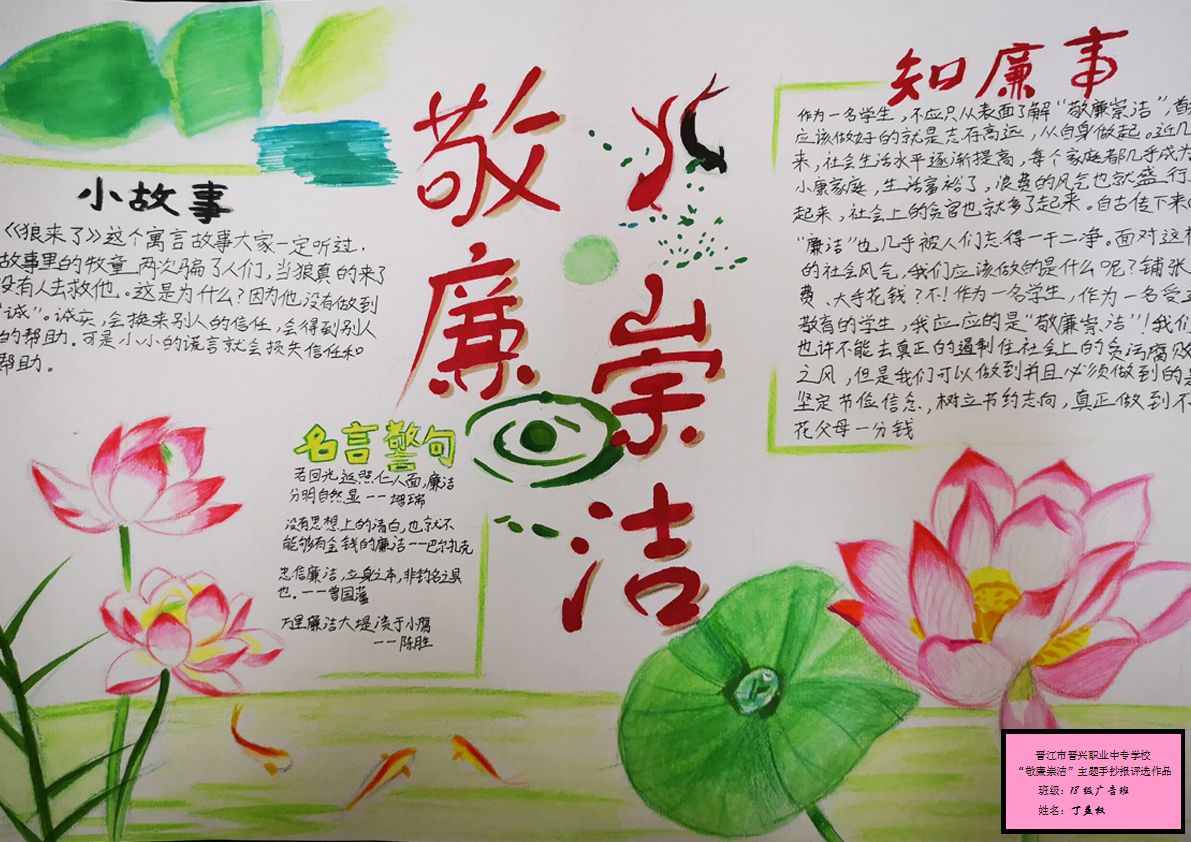 敬廉
崇洁
小故事
《狼来了》这个寓言故事大家一定听过.
故事里的牧童,两次骗了人们,当狼真的来了
没有人去救他。这是为什么?因为他没有做到
“诚”。诚实,会换来别人的信任,会得到别人
的帮助.可是小小的谎言就会损失信任和
帮助.
名言警句
若回光返照仁人面,廉洁
分明自然显——增瑞
没有思想上的清白,也就不
能够有金钱的廉洁——巴尔扎克
忠信廉洁,立身之本,非钓名之具
也.——曾国藩
万里廉洁大堤溃于小腐
——陈胜
知廉事
作为一名学生,不应只从表面了解“敬廉崇洁”,首
应该做好的就是志存高远,从自身做起。近几
来,社会生活水平逐渐提高,每个家庭都几乎成为
小康家庭,生活富裕了,浪费的风气也就盛行
起来,社会上的贪官也就多了起来。自古传下来
“廉洁”也几乎被人们忘得一干二净。面对这
的社会风气,我们应该做的是什么呢?铺张
费、大手花钱?不!作为一名学生,作为一名受
教育的学生,我应应的是“敬廉崇洁”!我们
也许不能去真正的遏制住社会上的贪污腐败
之风,但是我们可以做到并且必须做到的是
坚定节俭信念,树立节约志向,真正做到不
花父母一分钱
晋江市晋兴职业中专学校
“敬廉崇洁”主题手抄报评选作品
班级:18级广告班
姓名:丁孟权